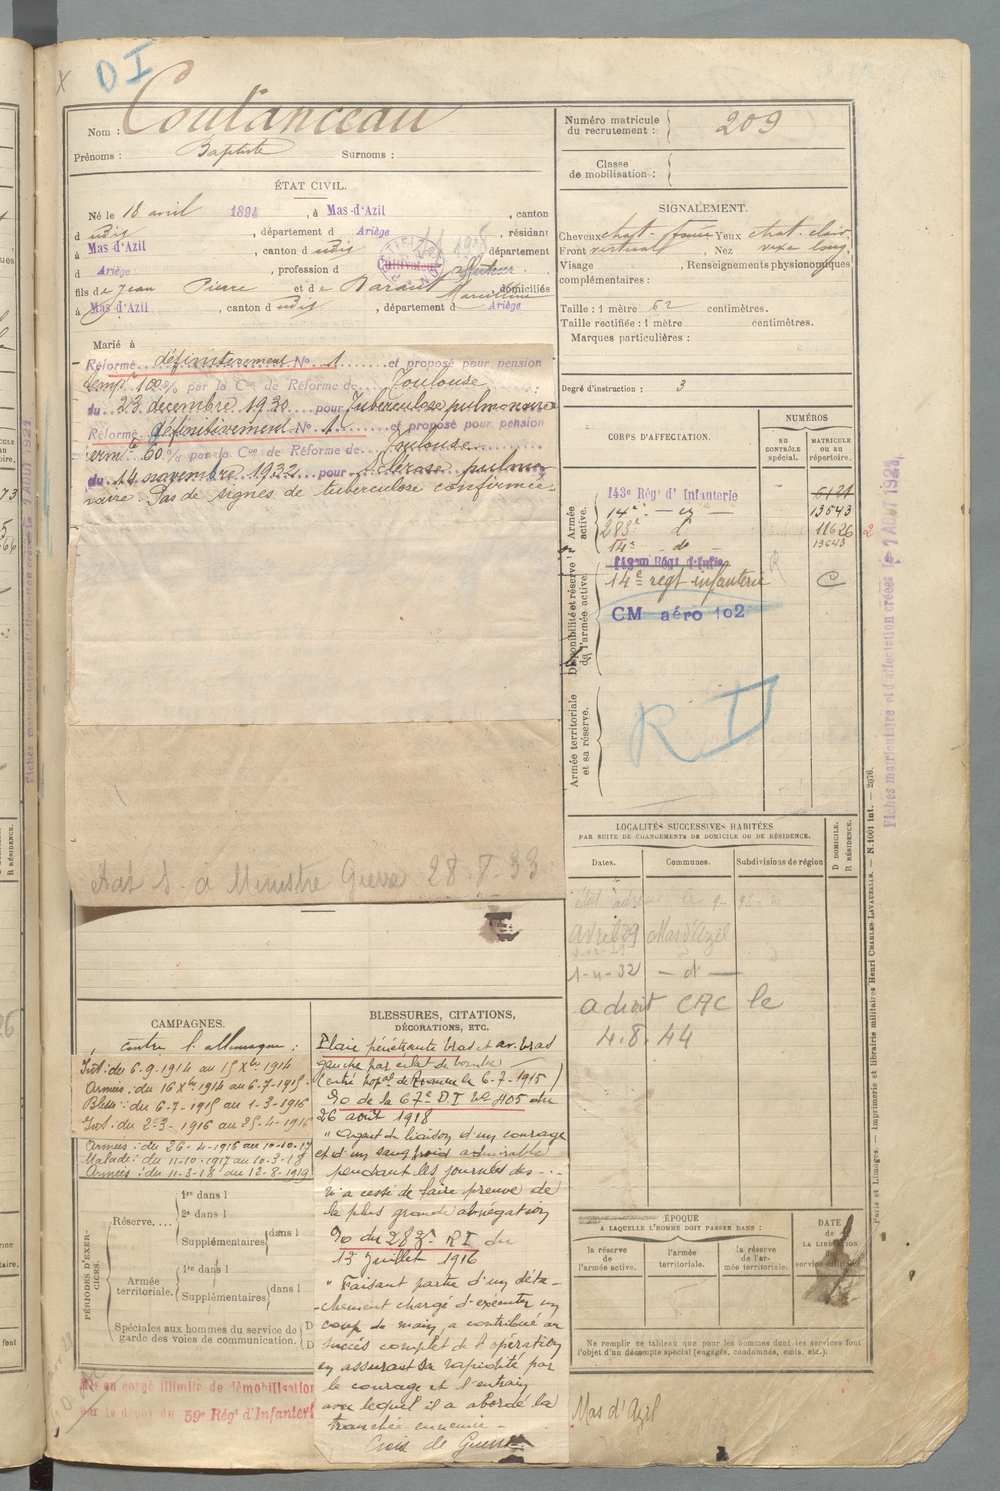 D I
Nom : Coutanceau
Prénoms : Baptiste Surnoms :
Numéro matricule du recrutement : 209
Classe de mobilisation :
ÉTAT CIVIL.
Né le 18 avril 1894, à Mas-d'Azil, canton
d udit, département d Ariège, résidant
à Mas-d'Azil, canton d udit, département
d Ariège, profession d Cultivateur
fils de Jean Pierre et de Baraut Marceline, domiciliés
à Mas-d'Azil, canton d udit, département d Ariège
Marié à
SIGNALEMENT.
Cheveux chat. Yeux chat. clair
Front vertical, Nez long.
Visage , Renseignements physionomiques
complémentaires :
Taille : 1 mètre 62 centimètres.
Taille rectifiée : 1 mètre centimètres.
Marques particulières :
Degré d'instruction : 3
Réformé définitivement N° 1 et proposé pour pension
temp. 100 % par la Con de Réforme de Toulouse
du 23 decembre 1930 pour Tuberculose pulmonaire
Réformé définitivement N° 1 et proposé pour pension
60 % par la Con de Réforme de Toulouse
du 14 novembre 1932 pour Sclérose pulmo
naire. Pas de signes de tuberculose confirmée.
CORPS D'AFFECTATION.
NUMÉROS
AU CONTRÔLE spécial.
MATRICULE OU AU répertoire.
Armée active.
143e Rég' d'Infanterie
14e 13643
283e d° 11626
14e do 13643
Disponibilité et réserve de l'armée active.
14e regt infanterie
CM aéro 102
Armée territoriale et sa réserve.
R D
LOCALITÉS SUCCESSIVES HABITÉES
PAR SUITE DE CHANGEMENTS DE DOMICILE OU DE RÉSIDENCE.
Dates. Communes. Subdivisions de région
D DOMICILE. R RÉSIDENCE.
Avril 29 Mas d'Azil
1-11-32 — d° —
adroit CAC le
4.8.44
à Ministre Guerre 28-8-33
CAMPAGNES.
contre l'allemagne :
Int. du 6-9-1914 au 15 Xbre 1914
Armées : du 16 Xbre 1914 au 6-7-1915
Blessé : du 6-7-1915 au 1-3-1916
Int. du 2-3-1916 au 25-4-1916
Armées : du 26-4-1916 au 10-10-17
Malade : du 11-10-1917 au 10-3-18
Armées : du 11-3-18 au 12-8-1919
BLESSURES, CITATIONS,
DÉCORATIONS, ETC.
Plaie pénétrante bras et av. bras
gauche par éclat de bombe
de la 67e D.I N° 405 du
26 août 1918
" Agent de liaison d'un courage
et d'un sang froid admirable
pendant les journées des ...
n'a cessé de faire preuve de
la plus grande abnégation
du 283e RI du
13 Juillet 1916
" Faisant partie d'un déta-
chement chargé d'exécuter un
coup de main, a contribué au
succès complet de l'opération
en assurant sa rapidité par
le courage et l'entrain
avec lequel il a abordé la
tranchée ennemie.
Croix de Guerre
PÉRIODES D'EXERCICES.
Réserve....
1re dans l
2e dans l
Supplémentaires dans l
Armée territoriale.
1re dans l
Supplémentaires dans l
Spéciales aux hommes du service de
garde des voies de communication.
D
D
ÉPOQUE
A LAQUELLE L'HOMME DOIT PASSER DANS :
la réserve de l'armée active.
l'armée territoriale.
la réserve de l'armée territoriale.
DATE de LA LIBÉRATION
Ne remplir ce tableau que pour les hommes dont les services font
l'objet d'un décompte spécial (engagés, condamnés, omis, etc.).
Mis en congé illimité de démobilisation
par le dépôt du 59e Rég' d'Infanterie
Mas d'Azil
Fiches matriculaire et d'affectation créées le 7 AOUT 1923
Paris et Limoges. — Imprimerie et librairie militaires Henri CHARLES-LAVAUZELLE. — N. 1001 int. — 2076.